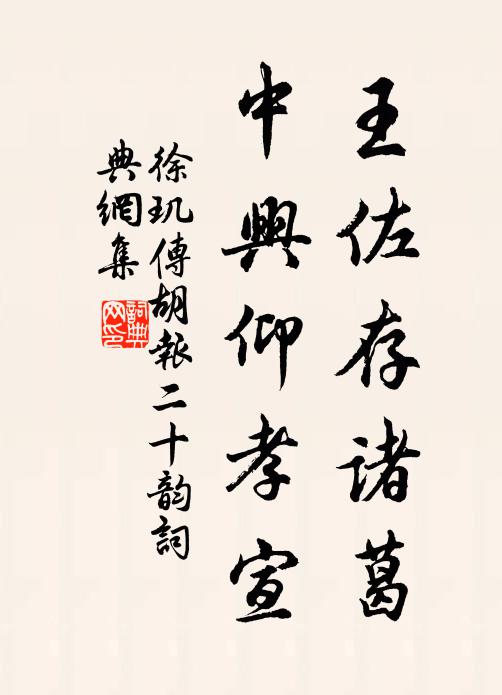 王佐存諸葛
中興仰孝宣
徐玑傳胡報二十韵詞
典網集
詞典
网印